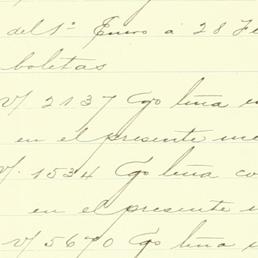 del 1º Enero á 28 Fe
boletas
V/ 2137 Cgo leña e
en el presente me
V. 1534 Cgo leña co
en el presente
V/ 5670 Cgo leña